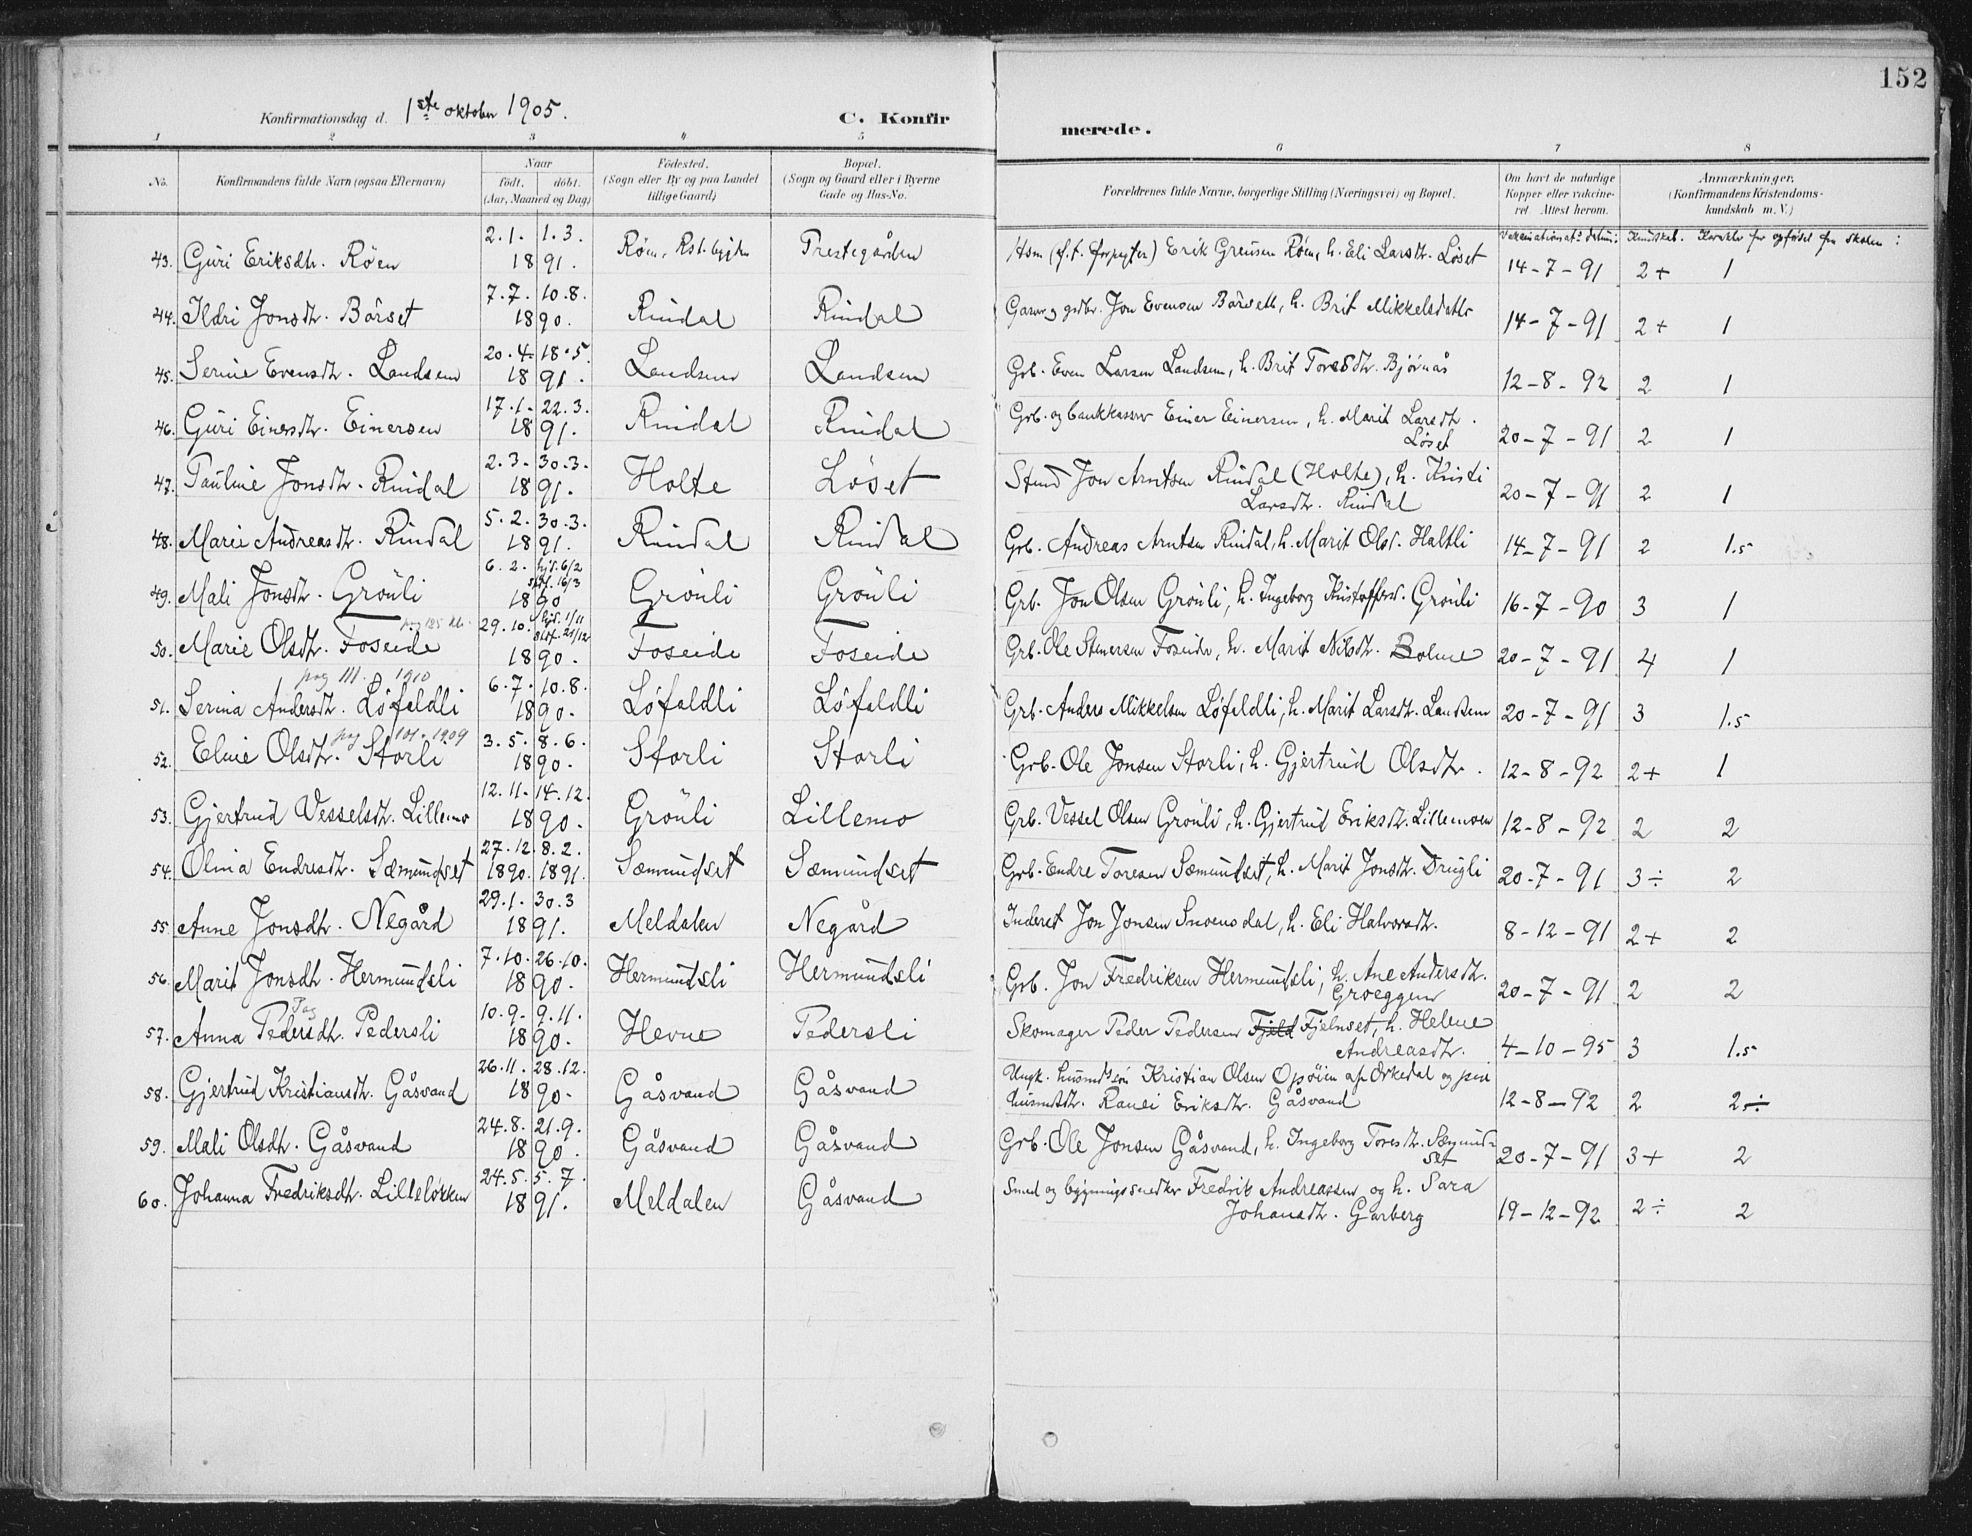 152
Konfirmationsdag d. 1ste oktober 1905.
C. Konfirmerede.
1 2 3 4 5 6 7 8
No. Konfirmandens fulde Navn (ogsaa Efternavn) Naar født. døbt. (Aar, Maaned og Dag) Fødested. (Sogn eller By og paa Landet tillige Gaard) Bopæl. (Sogn og Gaard eller i Byerne Gade og Hus-No. Forældrenes fulde Navne, borgerlige Stilling (Næringsvei) og Bopæl. Om havt de naturlige Kopper eller vakcineret Attest herom. Anmærkninger. (Konfirmandens Kristendomskundskab m. V.)
Vakcinationsat. datum: Kundskab. Karakter for opførsel fra skolen:
43. Guri Eriksdtr. Röen 2.1. 1.3. 1891. Röen, Rst.bygden Prestegården Hsm (f.t. forpagter) Erik Greusen Röen, h. Eli Larsdtr. Löset 14-7-91 2+ 1
44. Ildri Jonsdtr. Börset 7.7. 10.8. 1890. Rindal Rindal Garver og grdbr. Jon Evensen Börsett, h. Brit Mikkelsdatter 14-7-91 2+ 1
45. Serine Evensdtr. Landsem 20.4. 18.5. 1891. Landsem Landsem Grb. Even Larsen Landsem, h. Brit Toresdtr. Bjørnås 12-8-92 2 1
46. Guri Einersdtr. Einersen 17.1. 22.3. 1891. Rindal Rindal Grb. og bankkasserer Einer Einersen, h. Marit Larsdtr. Löset 20-7-91 2 1
47. Pauline Jonsdtr. Rindal 2.3. 30.3. 1891. Holte Löset Smed Jon Arntsen Rindal (Holte), h. Kristi Larsdtr. Rindal 20-7-91 2 1
48. Marie Andreasdtr. Rindal 5.2. 30.3. 1891. Rindal Rindal Grb. Andreas Arntsen Rindal, h. Marit Olsd. Haltli 14-7-91 2 1.5
49. Mali Jonsdtr. Grönli 6.2. hjd. 6/2 stdf. 16/3 1890 Grönli Grönli Grb. Jon Olsen Grönli, h. Ingeborg Kristoffersd. Grönli 16-7-90 3 1
50. Marie Olsdtr. Foseide 29.10. hjd. 1/11 stdf. 21/12 1890. Foseide Foseide Grb. Ole Stenersen Foseide, h. Marit Nilsdtr. Bolme 20-7-91 4 1
pag 111. 1910
51. Serina Andersdtr. Löfaldli 6.7. 10.8. 1890. Löfaldli Löfaldli Grb. Anders Mikkelsen Löfaldli, h. Marit Larsdtr. Landsem 20-7-91 3 1.5
pag 101. 1909
52. Eline Olsdtr. Storli 3.5. 8.6. 1890. Storli Storli Grb. Ole Jonsen Storli, h. Gjertrud Olsdtr. 12-8-92 2+ 1
53. Gjertrud Vesselsdtr. Lillemo 12.11. 14.12. 1890. Grönli Lillemo Grb. Vessel Olsen Grönli, h. Gjertrud Eriksdtr. Lillemoen 12-8-92 2 2
54. Olina Endresdtr. Sæmundset 27.12. 8.2. 1890. 1891. Sæmundset Sæmundset Grb. Endre Toresen Sæmundset, h. Marit Jonsdtr. Drugli 20-7-91 3÷ 2
55. Anne Jonsdtr. Negård 29.1. 30.3 1891. Meldalen Negård Inderst Jon Jonsen Snoensdal, h. Eli Halvorsdtr. 8-12-91 2+ 2
56. Marit Jonsdtr. Hermundsli 7.10. 26.10. 1890. Hermundsli Hermundsli Grb. Jon Fredriksen Hermundsli, h. Ane Andersdtr. Groeggen 20-7-91 2 2
Pag
57. Anna Pedersdtr. Pedersli 10.9. 9.11. 1890. Hevne Pedersli Skomager Peder Pedersen Fjeld Fjelnset, h. Helene Andreasdtr. 4-10-95 3 1.5
58. Gjertrud Kristiansdtr. Gåsvand 26.11. 28.12. 1890. Gåsvand Gåsvand Ungk. husmdsön Kristian Olsen Opöien af Orkedal og pige husmdsdtr. Ranei Eriksdtr. Gåsvand 12-8-92 2 2÷
59. Mali Olsdtr. Gåsvand 24.8. 21.9. 1890. Gåsvand Gåsvand Grb. Ole Jonsen Gåsvand, h. Ingeborg Toresdtr. Sæmundset 20-7-91 3+ 2
60. Johanna Fredriksdtr. Lilleløkken 24.5. 5.7. 1891. Meldalen Gåsvand Smed og bygningssnedker Fredrik Andreassen og h. Sara Johansdtr. Garberg 19-12-92 2÷ 2